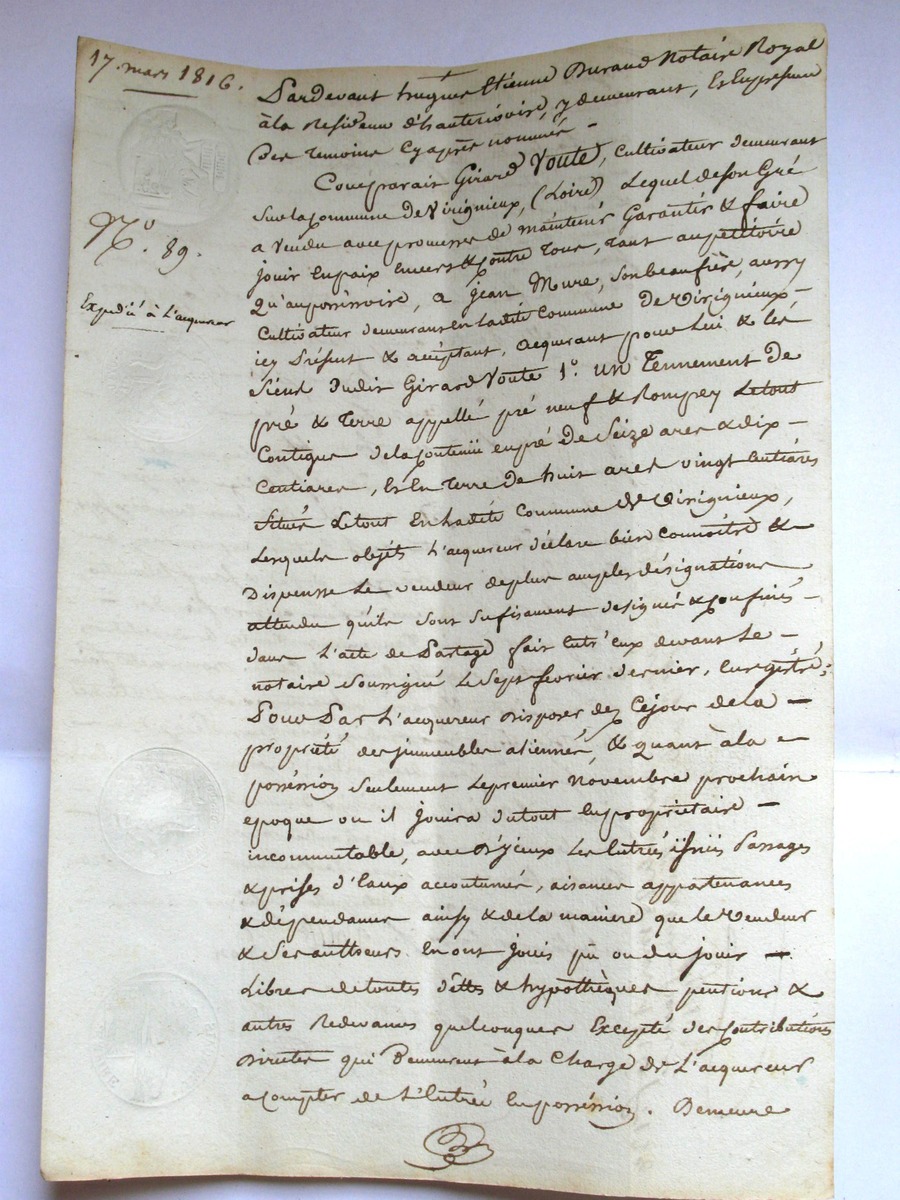 17. mars 1816.
N.o 89.
Expedié à L'acquereur
Pardevant hugues Etienne Durand Notaire Royal
à la Residence d'hauterivoire, y demeurant, Et En presence
Des temoins Cy après nommés –
Comparait Girard Voute, Cultivateur demeurant
Sur la Commune De Virigneux, (Loire) Lequel de son Gré
a vendu avec promesse de maintenir Garantir & faire
jouir En paix Envers & Contre Tous, tant au petitoire
Qu'au possessoire, a jean Mure, son beaufrère, aussy
Cultivateur demeurant En ladite Commune De Virigneux, –
icy Présent & acceptant, acquerant pour Lui & les
Siens Dudit Girard Voute 1.o un Tennement De
pré & Terre appellé pré neuf & Rompey Le tout
Contigue de la Contenue en pré De Seize ares & dix –
Centiares, Et En Terre De huit ares vingt Centiares
Situés Le tout En Ladite Commune De Virigneux,
Lesquels objéts L'acquereur déclare bien Connoitre &
Dispense Le vendeur de plus amples désignations
attendu qu'ils sont sufisament designés & Confinés –
dans L'acte de Partage fait Entr'Eux devant Le –
notaire Soussigné Le Sept février Dernier, Enregistré;
Pour Par L'acquereur Disposer dez Cejour de la –
propriété des jmmeubles aliennés, & quant à la –
poséssion Seulement Le premier Novembre prochain
epoque ou il jouira du tout En propriétaire –
incommutable, avec D'jceux Les Entrées issües Passages
& prises d'Eaux accoutumés, aisances appartenances
& dépendances ainsy & de la maniere que le Vendeur
& Ses autheurs En ont jouis pû ou du jouir –
Libres de toutes déttes & hypothèques pentions &
autres Redevances quelconques Excepté des Contributions
Directes qui Demeurent à la Charge De L'acquereur
a Compter de L'Entrée En poséssion. Demeure